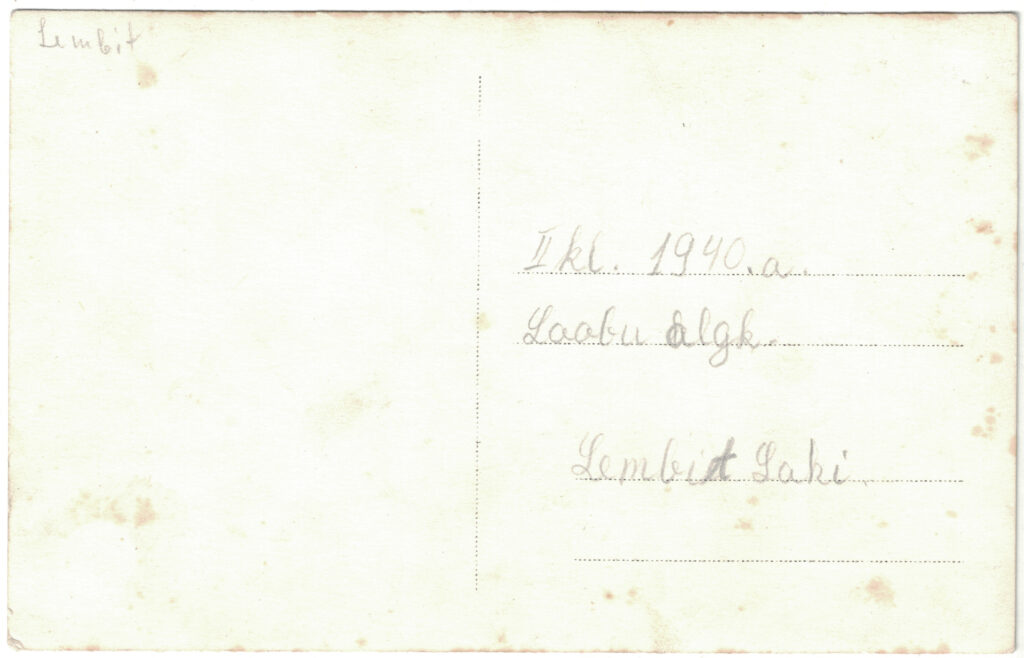 Lembit
II kl. 1940. a.
Loobu algk.
Lembit Laki.